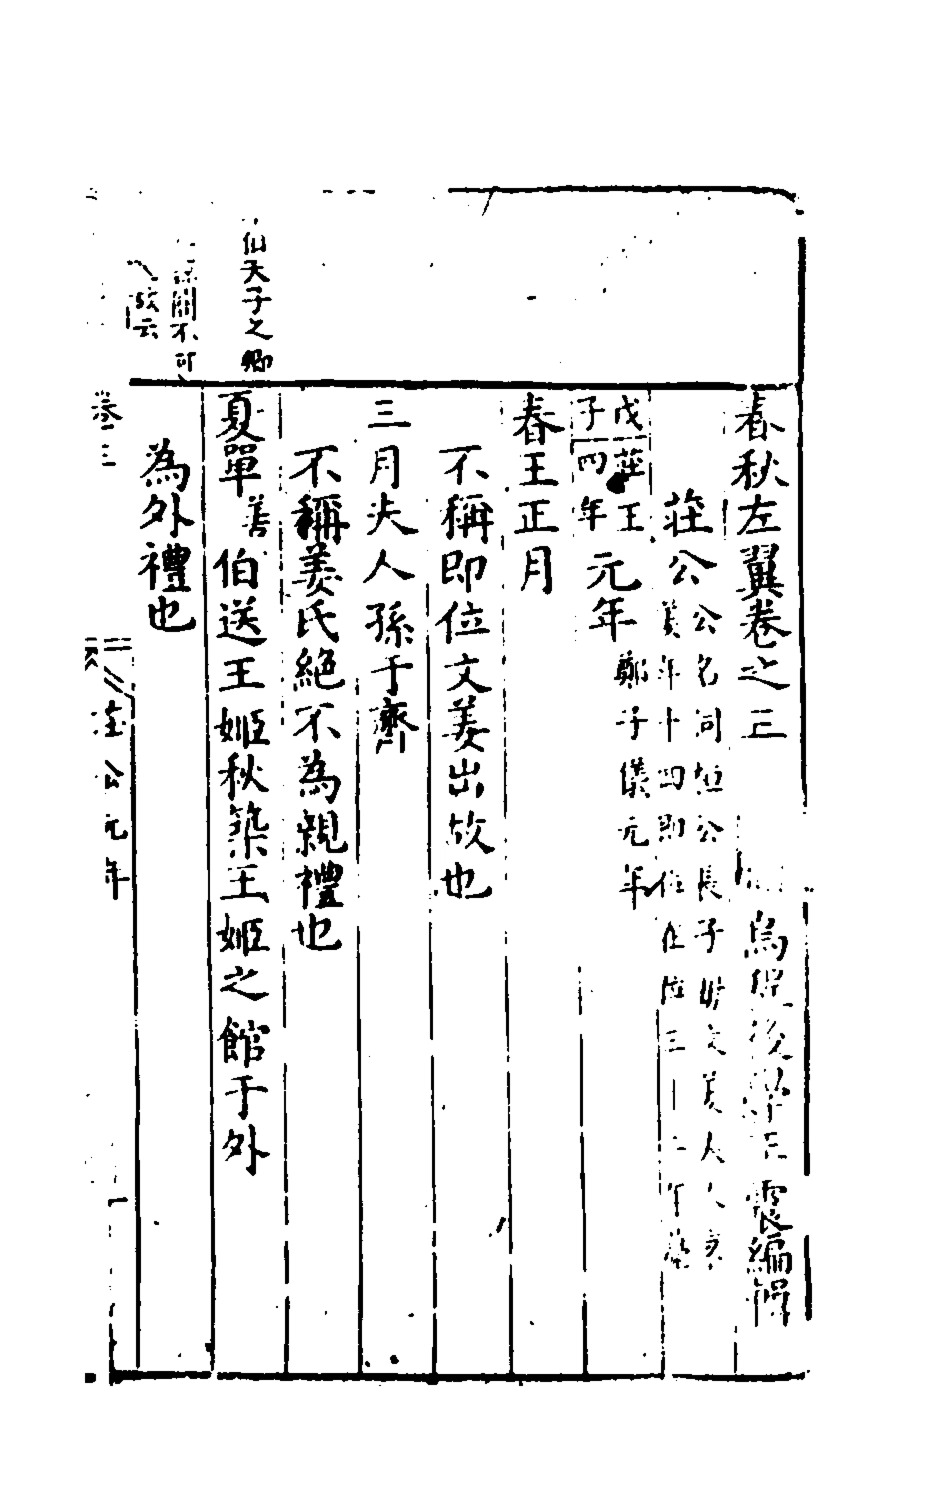 春秋左翼卷之三
烏程後學王震編輯
莊公
公名同桓公長子母文姜夫人
年十四即位在位三十二年薨
戊子
莊王四年
元年
鄭子儀元年
春王正月
不稱即位文姜出故也
三月夫人孫于齊
不稱姜氏絕不為親禮也
夏單
善
伯送王姬秋築王姬之館于外
為外禮也
伯天子之卿
關不可
故云
卷三
莊公元年